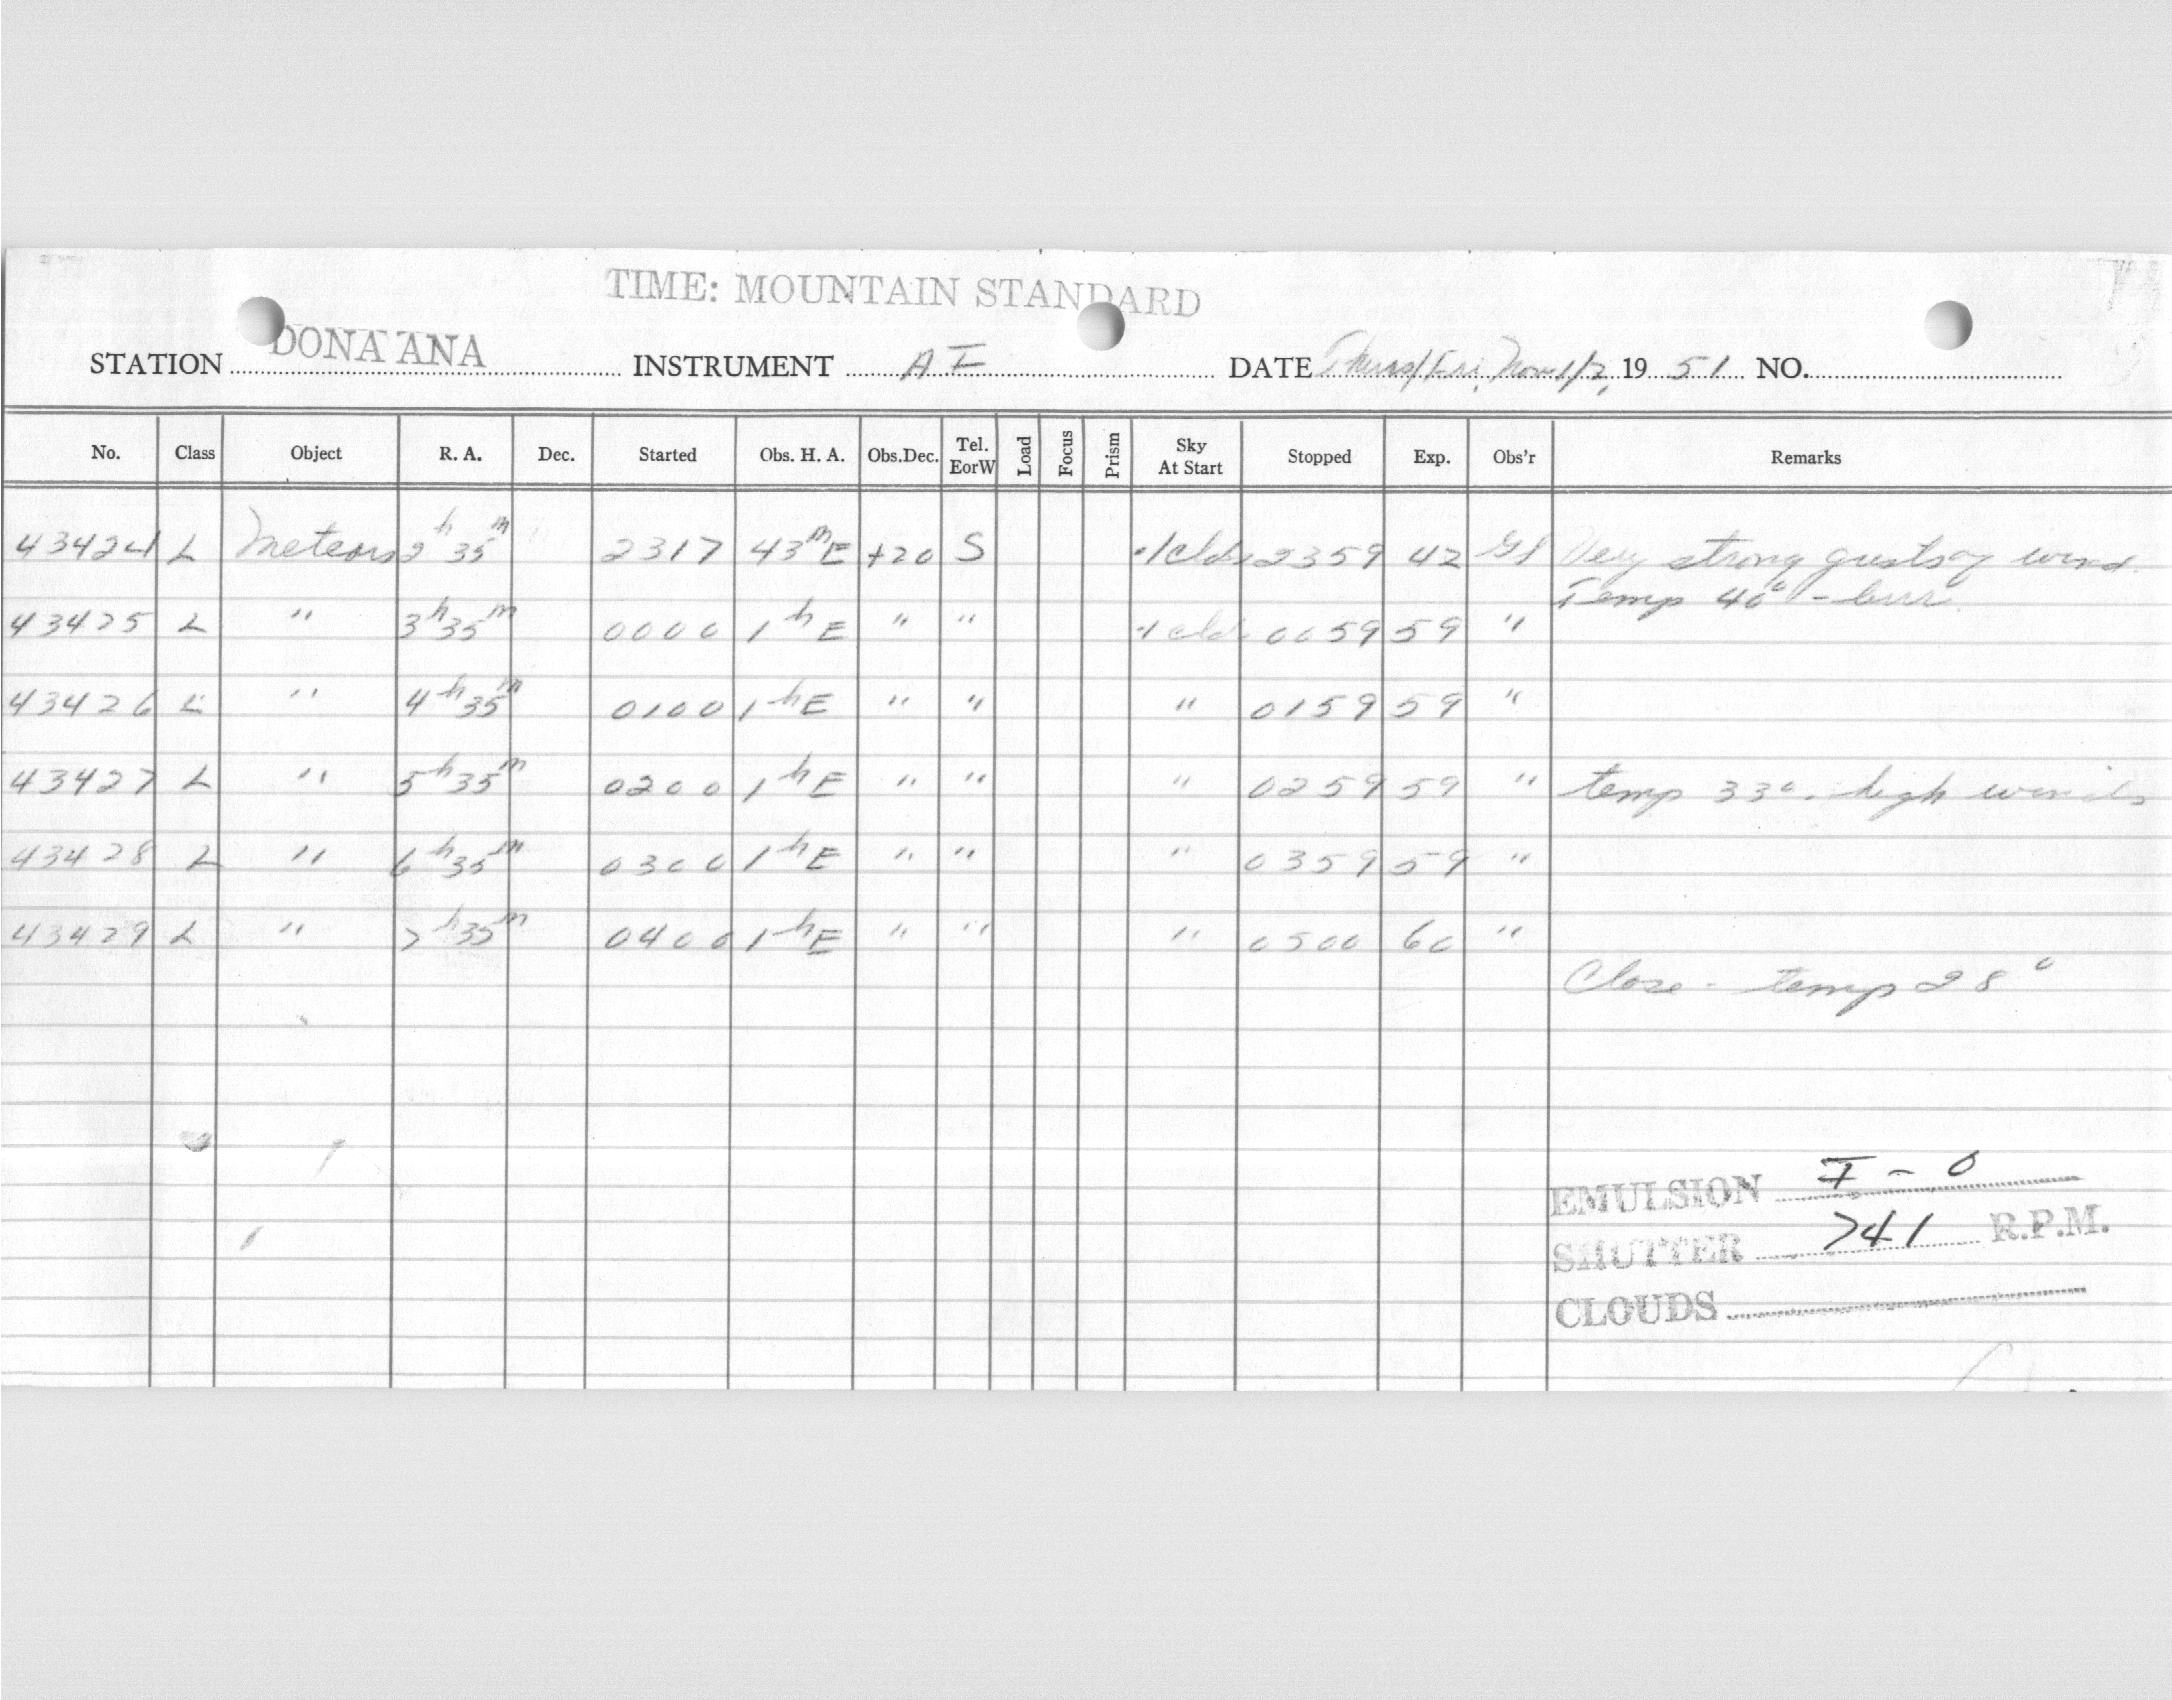 TIME: MOUNTAIN STANDARD
STATION DONA ANA INSTRUMENT AI DATE Thurs/Fri, Nov 1/2, 1951 NO.
No. Class Object R. A. Dec. Started Obs. H. A. Obs.Dec. Tel. EorW Load Focus Prism Sky At Start Stopped Exp. Obs'r Remarks
43424 L Meteors 2h 35m 2317 43mE +20 S .1 clds 2359 42 GS Very strong gusts of wind.
Temp 40° - burr.
43425 L " 3h 35m 0000 1hE " " .1 cld 0059 59 "
43426 L " 4h 35m 0100 1hE " " " 0159 59 "
43427 L " 5h 35m 0200 1hE " " " 0259 59 " temp 33°. high winds
43428 L " 6h 35m 0300 1hE " " " 0359 59 "
43429 L " 7h 35m 0400 1hE " " " 0500 60 "
Close - temp 28°
EMULSION I - O
SHUTTER 741 R.P.M.
CLOUDS